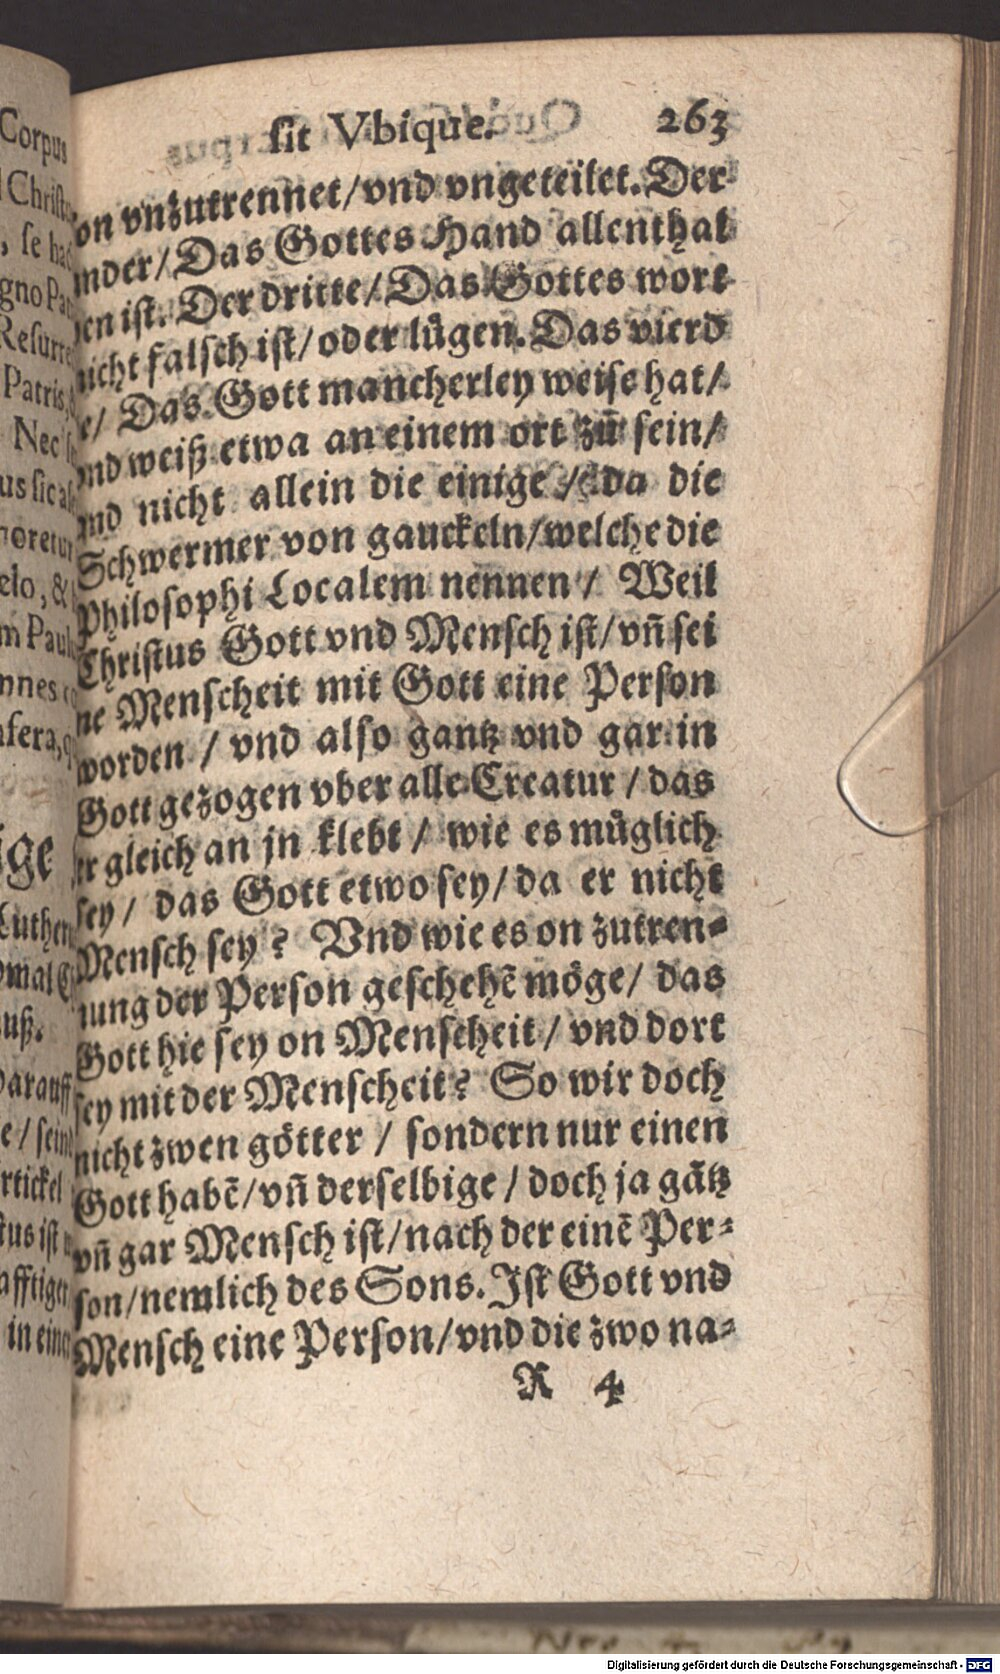 sit Vbique. 263
on vnzutrennet/vnd vngeteilet. Der
ander/Das Gottes Hand allenthal
ben ist. Der dritte/Das Gottes wort
nicht falsch ist/oder lůgen. Das vierd
e/ Das Gott mancherley weise hat/
vnd weiß etwa an einem ort zů sein/
vnd nicht allein die einige / da die
Schwermer von gauckeln/welche die
Philosophi Localem nennen / Weil
Christus Gott vnd Mensch ist/vñ sei
ne Menscheit mit Gott eine Person
worden / vnd also gantz vnd gar in
Gott gezogen vber alle Creatur / das
er gleich an jn klebt / wie es můglich
sey / das Gott etwo sey/da er nicht
Mensch sey? Vnd wie es on zutren-
nung der Person geschehē möge/ das
Gott hie sey on Menscheit / vnd dort
sey mit der Menscheit? So wir doch
nicht zwen götter / sondern nur einen
Gott habē/vñ derselbige / doch ja gātz
vñ gar Mensch ist/nach der einē Per-
son/nemlich des Sons. Ist Gott vnd
Mensch eine Person/vnd die zwo na-
R 4
Corpus
Patris
Nec
Digitalisierung gefördert durch die Deutsche Forschungsgemeinschaft - DFG